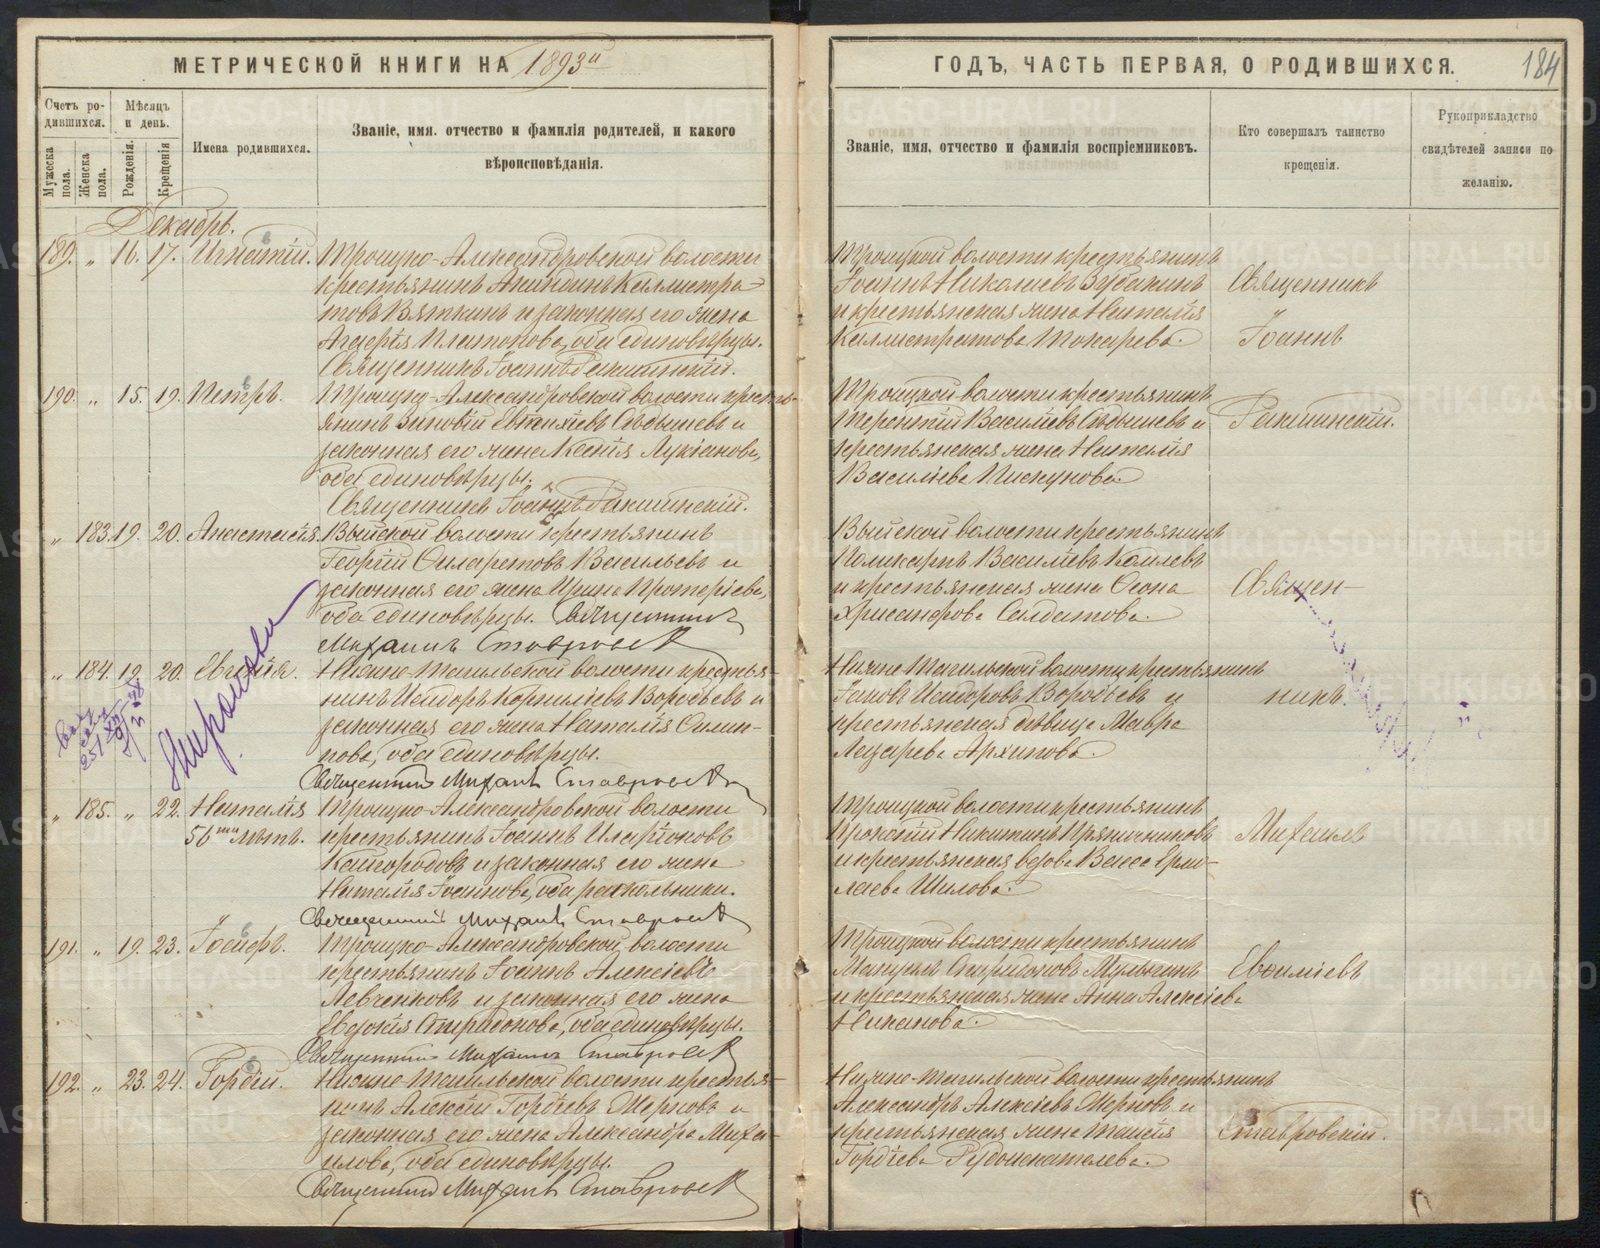 МЕТРИЧЕСКОЙ КНИГИ НА 1893й
ГОДЪ, ЧАСТЬ ПЕРВАЯ, О РОДИВШИХСЯ.
184
Счетъ родившихся.
Мужеска пола.
Женска пола.
Мѣсяцъ и день.
Рожденія.
Крещенія
Имена родившихся.
Званіе, имя, отчество и фамилія родителей, и какого
вѣроисповѣданія.
Званіе, имя, отчество и фамилія воспріемниковъ.
Кто совершалъ таинство
крещенія.
Рукоприкладство
свидѣтелей записи по
желанію.
Декабрь.
189. „ 16. 17. Игнатій. Троицко-Александровской волости
крестьянинъ Акиндинъ Каллистра-
товъ Вяткинъ и законная его жена
Агафія Платонова, оба единовѣрцы.
Священникъ Іоаннъ
Троицкой волости крестьянинъ
Іоаннъ Николаевъ
и крестьянская жена Наталія
Каллистратова Токарева.
Священникъ
Іоаннъ
190. „ 15. 19. Петръ. Троицко-Александровской волости кресть-
янинъ Зиновій Евгеніевъ и
законная его жена Ксенія Лукіанова,
оба единовѣрцы.
Священникъ Іоаннъ
Троицкой волости крестьянинъ
Терентій Василіевъ и
крестьянская жена Наталія
Василіева Пискунова.
„ 183. 19. 20. Анастасія. Выйской волости крестьянинъ
Георгій Филаретовъ Васильевъ и
законная его жена Ирина Протеріева,
оба единовѣрцы. Священникъ
Михаилъ Ставровскій
Выйской волости крестьянинъ
Поликарпъ Василіевъ Комлевъ
и крестьянская жена
Хрисанфова Солдатова.
Священ-
„ 184. 19. 20. Евгенія. Нижне-Тагильской волости крестья-
нинъ Исидоръ Корниліевъ Воробьевъ и
законная его жена Наталія Филип-
пова, оба единовѣрцы.
Священникъ Михаилъ Ставровскій
Нижне-Тагильской волости крестьянинъ
Іаковъ Исидоровъ Воробьевъ и
крестьянская дѣвица Мавра
Лазарева Архипова.
никъ.
„ 185. „ 22. Наталія Троицко-Александровской волости
56ти лѣтъ. крестьянинъ Іоаннъ Иларіоновъ
Кайгородовъ и законная его жена
Наталія Іоаннова, оба раскольники.
Священникъ Михаилъ Ставровскій
Троицкой волости крестьянинъ
Прокопій Никитинъ Пряничниковъ
и крестьянская вдова Васса Ермо-
лаева Шилова.
Михаилъ
191. „ 19. 23. Іосифъ. Троицко-Александровской волости
крестьянинъ Іоаннъ Алексіевъ
Левченковъ и законная его жена
Евдокія Спиридонова, оба единовѣрцы.
Священникъ Михаилъ Ставровскій
Троицкой волости крестьянинъ
Мануилъ Спиридоновъ Мулыгинъ
и крестьянская жена Анна Алексіева
Никанова.
Евѳиміевъ
192. „ 23. 24. Гордій. Нижне-Тагильской волости крестья-
нинъ Алексій Гордіевъ Жерновъ и
законная его жена Александра Миха-
илова, оба единовѣрцы.
Священникъ Михаилъ Ставровскій
Нижне-Тагильской волости крестьянинъ
Александръ Алексіевъ Жерновъ и
крестьянская жена Таисія
Гордіева Рудоискателева.
Ставровскій.
METRIKI.GASO-URAL.RU